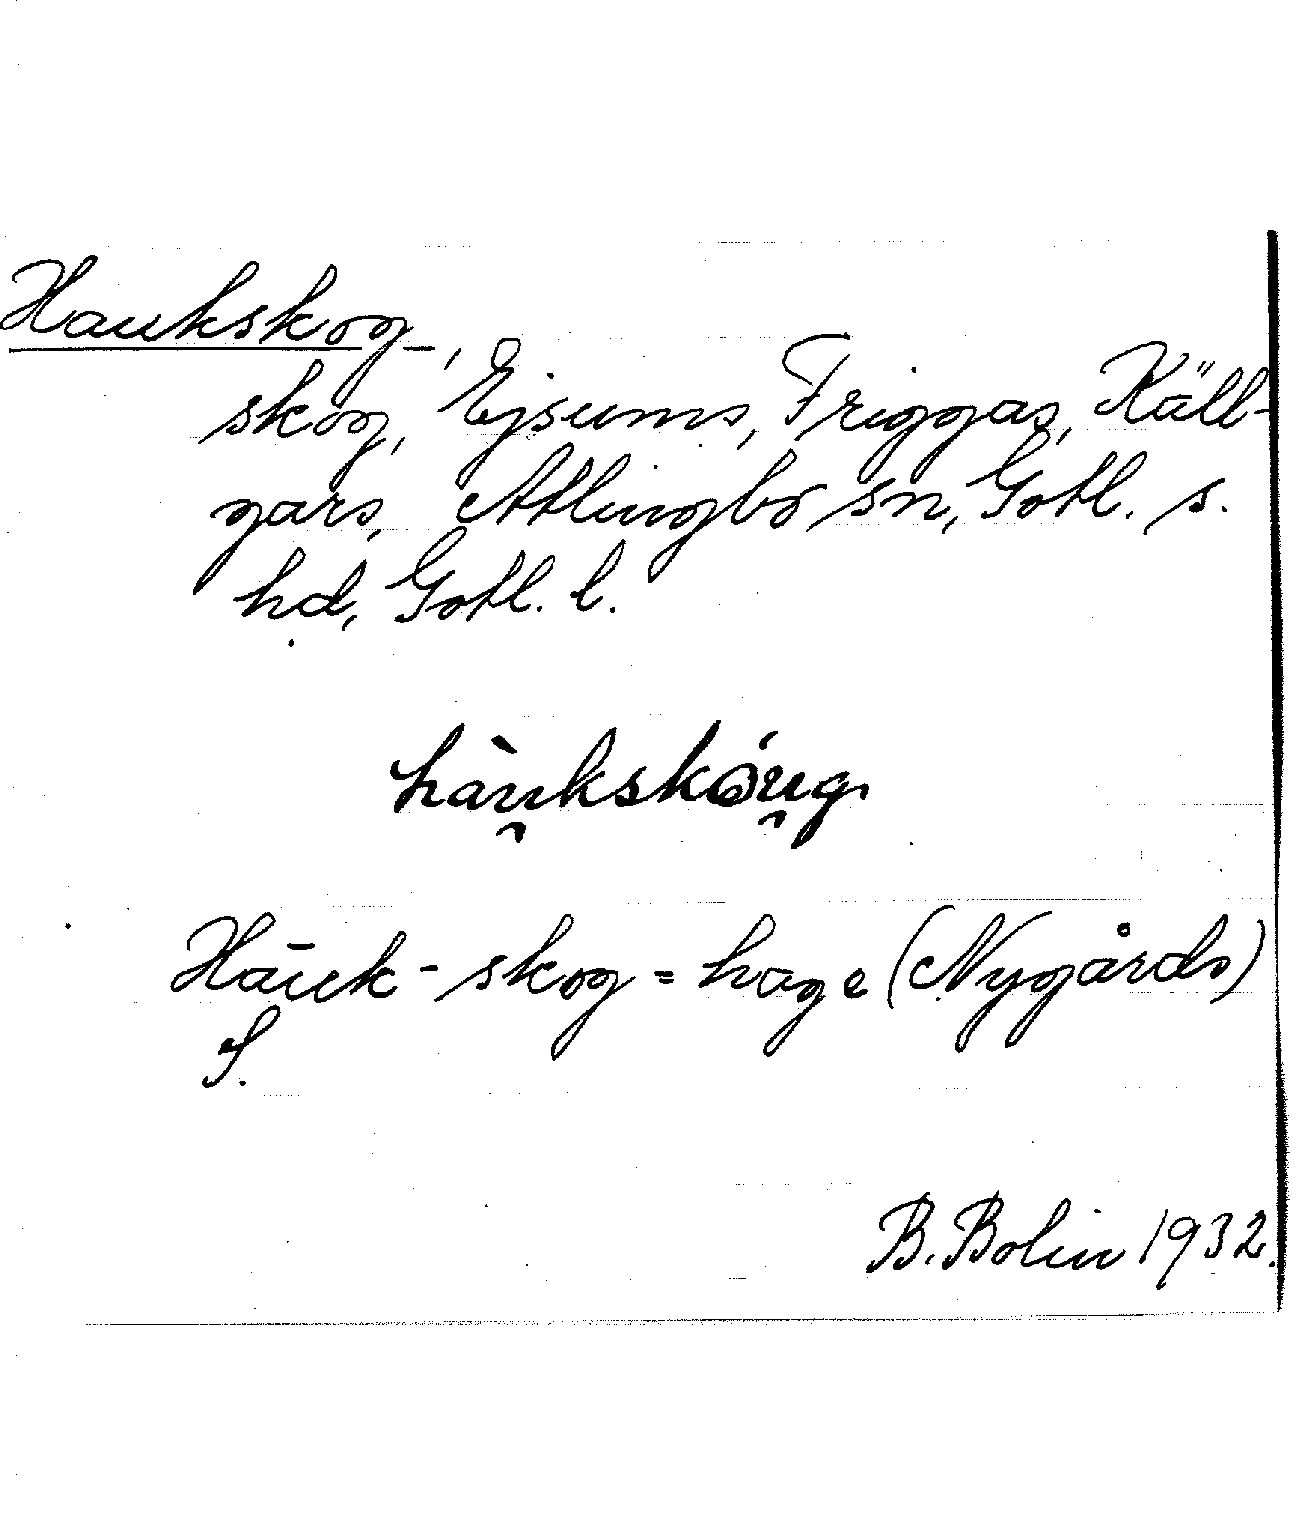 Haukskog,
skog, Ejsums, Friggas, Käll-
gars, Atlingbo sn, Gotl. s.
hd, Gotl. l.
hàu̯kskóu̯g.
Hāuk-skog = hage (Nygårds)
S.
B. Bolin 1932.